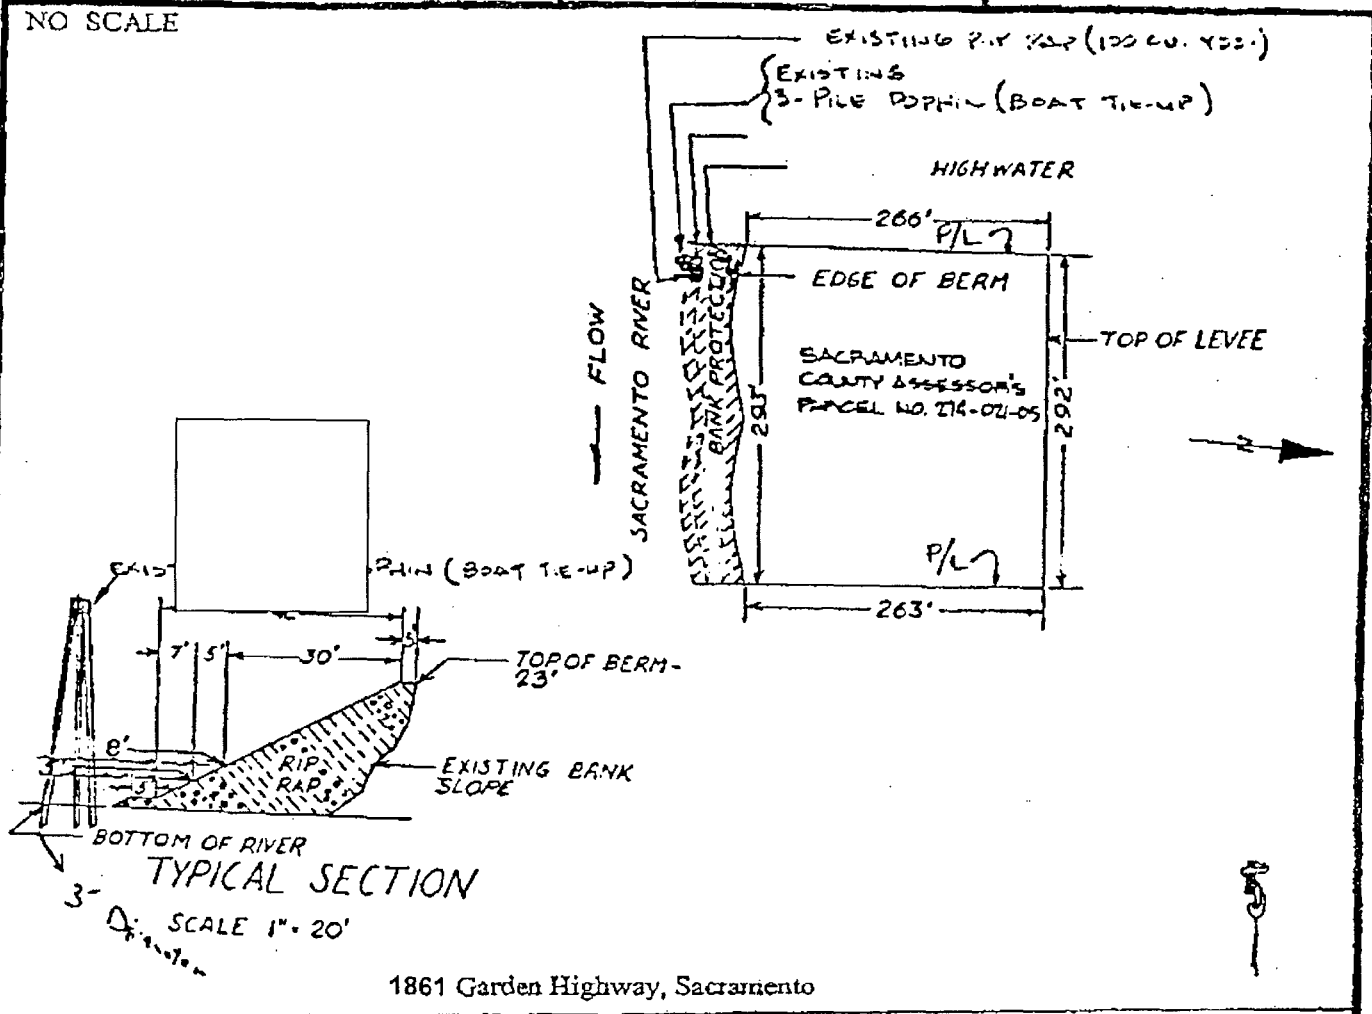 NO SCALE
EXISTING RIP RAP (100 CU. YDS.)
EXISTING
3-PILE DOPHIN (BOAT TIE-UP)
HIGHWATER
266'
P/L
EDGE OF BERM
BANK PROTECTION
FLOW
SACRAMENTO RIVER
TOP OF LEVEE
SACRAMENTO
COUNTY ASSESSOR'S
PARCEL NO.
293'
292'
N
P/L
263'
EXIS
PHIN (BOAT TIE-UP)
5'
7' 5' 30'
TOP OF BERM-
23'
8'
3'
5'
RIP
RAP
EXISTING BANK
SLOPE
BOTTOM OF RIVER
TYPICAL SECTION
3"
SCALE 1"=20'
1861 Garden Highway, Sacramento